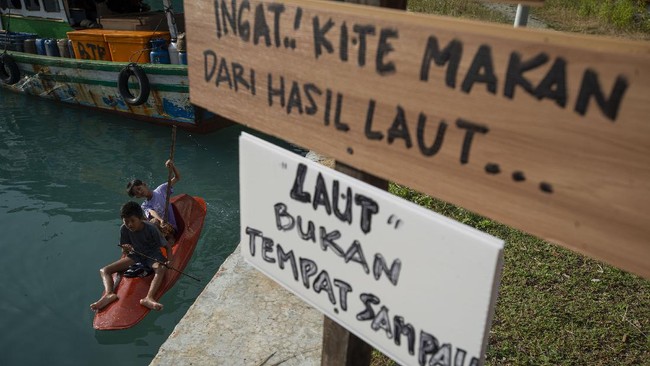 INGAT..! KITE MAKAN
DARI HASIL LAUT...
"LAUT"
BUKAN
TEMPAT SAMPAH